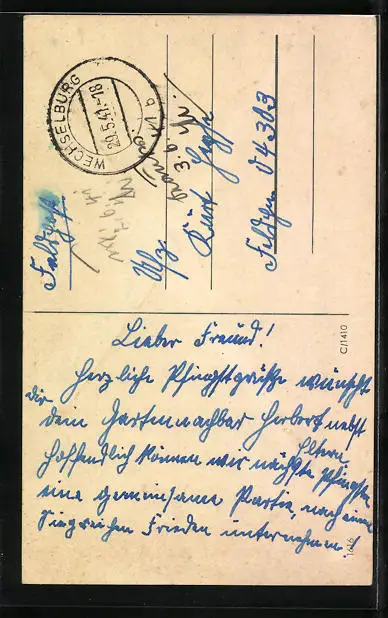 WECHSELBURG
29.5.41.-18
b
Feldpost
Uffz.
Kurt
Feldpn 04303
3.6.
C/1410
Lieber Freund!
Herzliche Pfingstgrüße wünscht
dir dein Gartennachbar Herbert nebst
Eltern
Hoffendlich können wir nächste Pfingsten
eine gemeinsame Partie, nach einem
Siegreichen Frieden unternehmen!